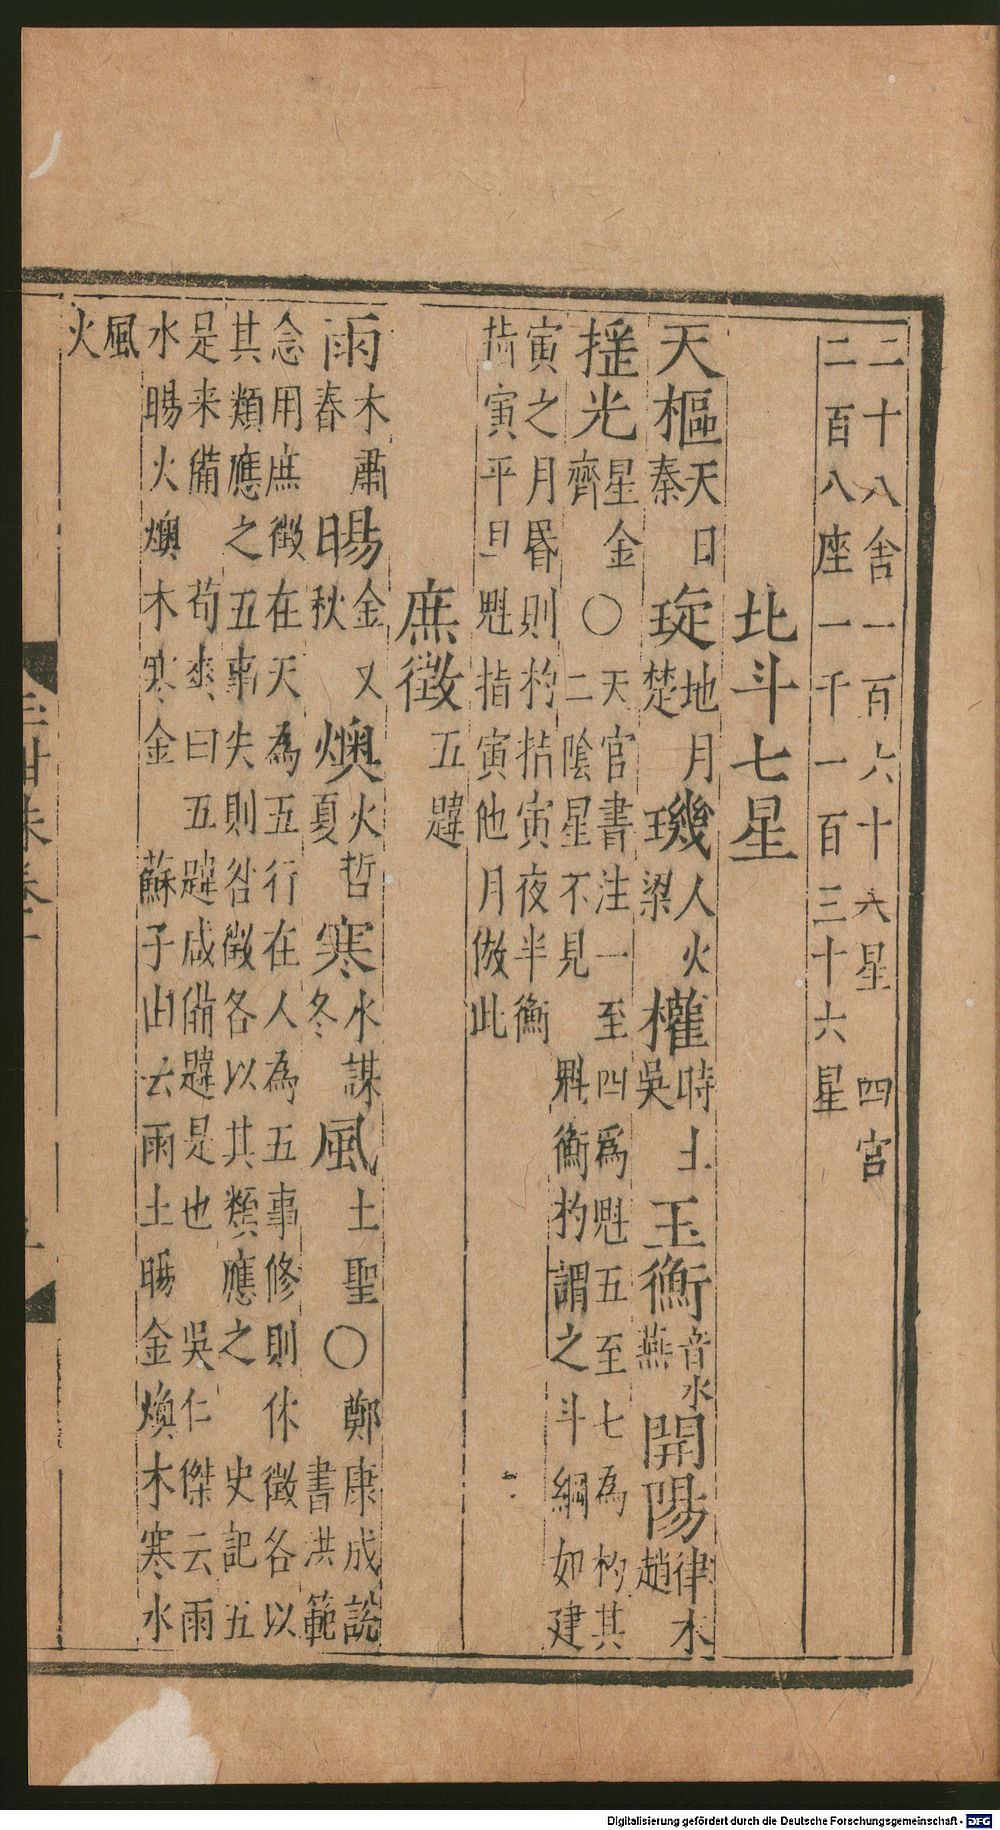 二十八舍一百六十六星　四宫
二百八座一千一百三十六星
北斗七星
天樞天日秦 琁地月楚 璣人火梁 權時土吳 玉衡音水燕 開陽律木趙
揺光星金齊〇天官書注一至四爲魁五至七為杓其
二陰星不見　魁衡杓謂之斗綱如建
寅之月昬則杓指寅夜半衡
指寅平旦魁指寅他月倣此
庶徵五韙
雨木肅春 暘金乂秋 燠火哲夏 寒水謀冬 風土聖〇鄭康成說
書洪範
念用庶徵在天為五行在人為五事修則休徵各以
其類應之五事失則咎徵各以其類應之　史記五
是来備　荀爽曰五韙咸備韙是也　吳仁傑云雨
水暘火燠木寒金　蘇子由云雨土暘金燠木寒水
風
火